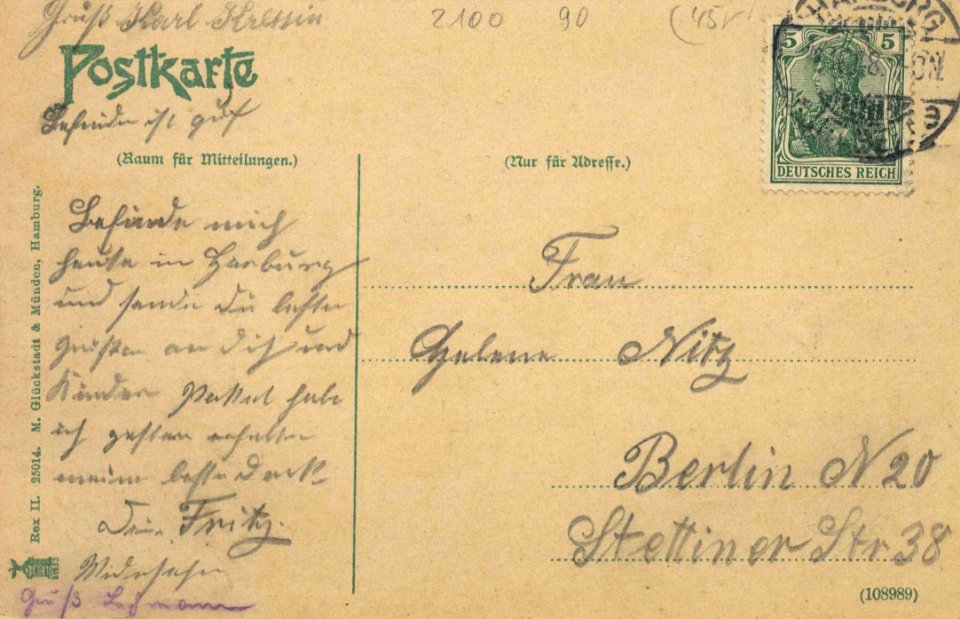 Gruß Karl Kressin
2100 90 (45
Postkarte
Befinden ist gut
(Raum für Mitteilungen.)
(Nur für Adresse.)
5 5
DEUTSCHES REICH
HARBURG
Befinde mich
heute in Harburg
und sende die besten
Grüßen an Dich und
Kinder Packet habe
ich gestern erhalten
meinen besten Dank
Dein Fritz.
Wiedersehn
Gruß Lehmann
Frau
Helene Nitz
Berlin N 20
Stettiner Str 38
Rex II. 25014. M. Glückstadt & Münden, Hamburg.
(108989)